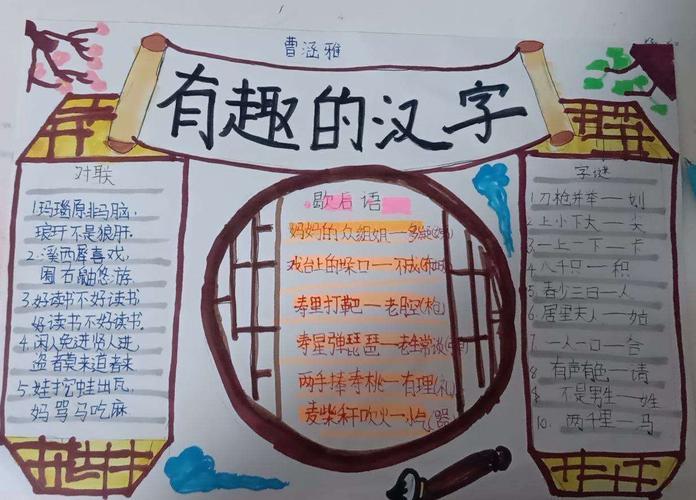 曹涵雅
有趣的汉字
对联
1.玛瑙原非马脑,
琅玕不是狼肝.
2.溪西犀喜戏,
囿右鼬悠游.
3.好读书不好读书
好读书不好读书.
4.闲人免进贤人进,
盗者莫来道者来
5.娃挖蛙出瓦,
妈骂马吃麻
歇后语
妈妈的众姐妹一多
戏台上的垛口一不成
寿里打靶一老腔(枪)
寿星弹琵琶一老生常谈
两手捧寿桃一有理(礼)
麦柴秆吹火一小气(器)
字谜
1.刀枪并举一划
2.上小下大一尖
3.一上一下一卡
4.八千只一积
5.春少三日一人
6.居里夫人一姑
7.一人一口一合
8 有声有色一请
9. 不是男生一姓
10. 一两千里一马